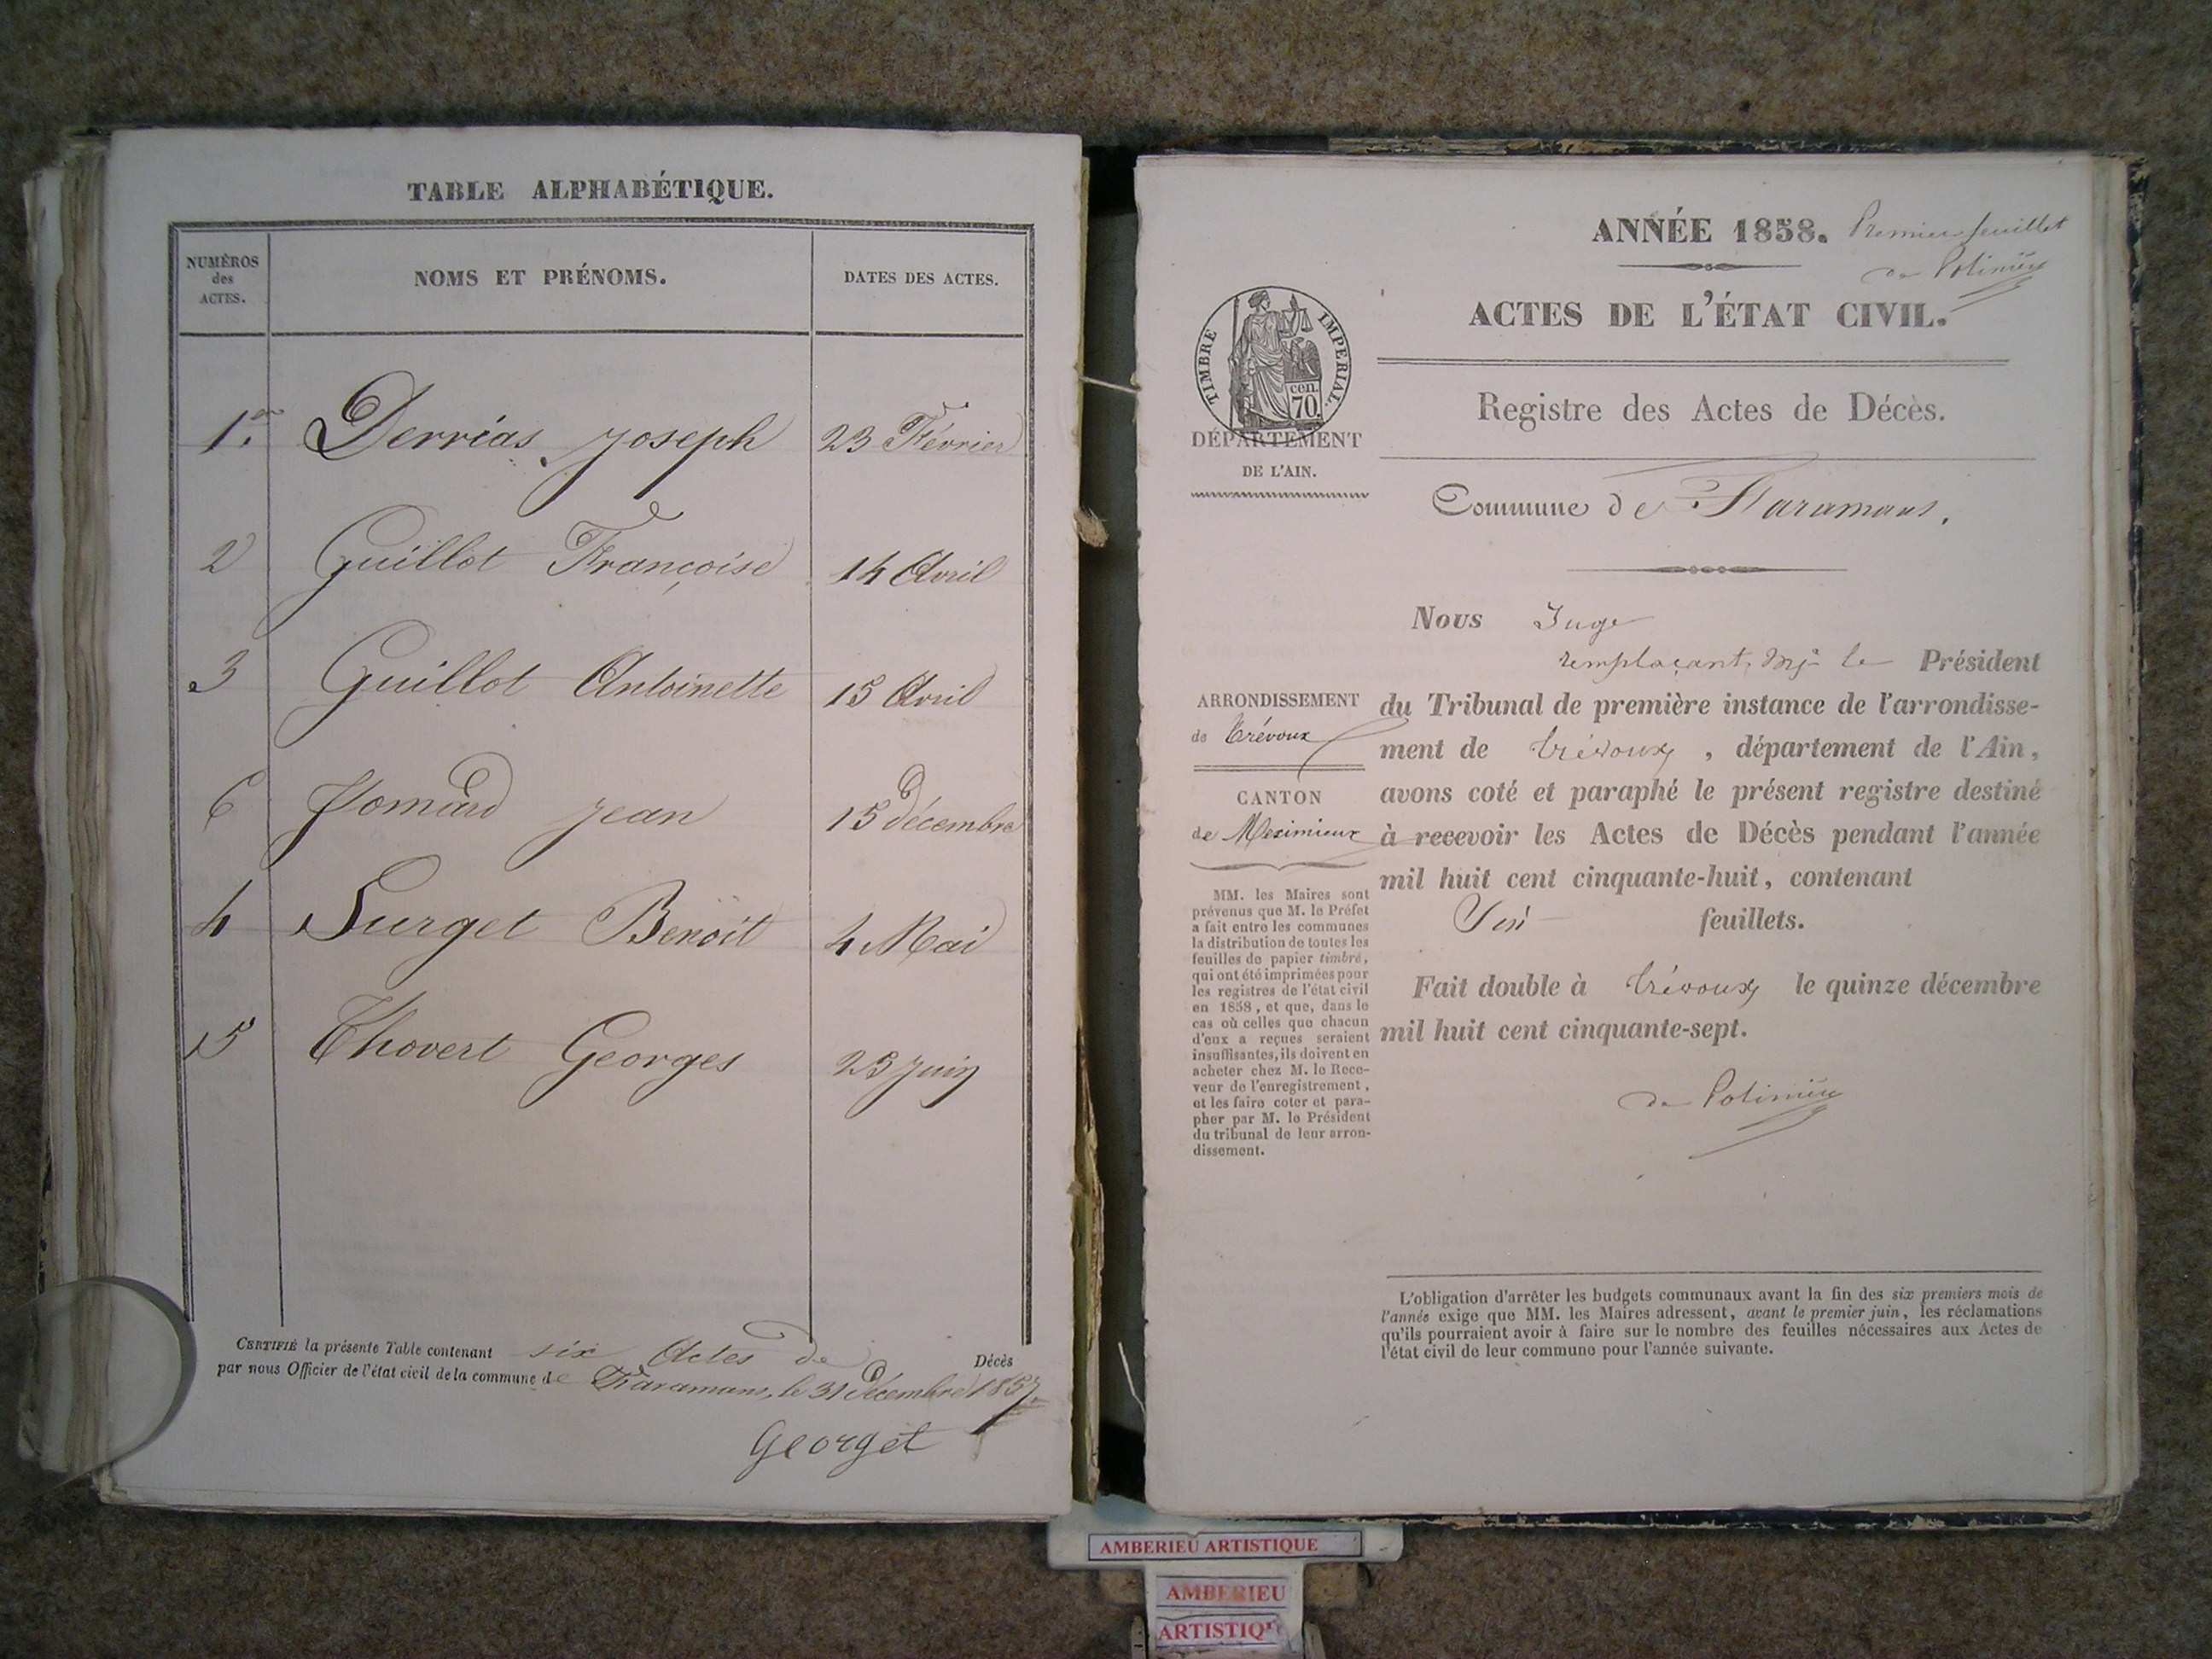 TABLE ALPHABÉTIQUE.
NUMÉROS
des
ACTES.
NOMS ET PRÉNOMS.
DATES DES ACTES.
1er Derrias Joseph 23 Février
2 Guillot Françoise 14 Avril
3 Guillot Antoinette 15 Avril
6 Jomard Jean 15 décembre
4 Surget Benoît 4 Mai
5 Thovert Georges 23 juin
CERTIFIÉ la présente Table contenant six Actes de Décès
par nous Officier de l'état civil de la commune de Faramans, le 31 décembre 1857.
Georget
ANNÉE 1858. Premier feuillet
de Polinière
ACTES DE L'ÉTAT CIVIL.
TIMBRE IMPERIAL.
cen.
70.
Registre des Actes de Décès.
DÉPARTEMENT
DE L'AIN.
Commune de Faramans.
Nous Juge
remplaçant Mr le Président
du Tribunal de première instance de l'arrondisse-
ment de Trévoux, département de l'Ain,
avons coté et paraphé le présent registre destiné
à recevoir les Actes de Décès pendant l'année
mil huit cent cinquante-huit, contenant
feuillets.
Fait double à Trévoux le quinze décembre
mil huit cent cinquante-sept.
de Polinière
ARRONDISSEMENT
de Trévoux
CANTON
de Meximieux
MM. les Maires sont
prévenus que M. le Préfet
a fait entre les communes
la distribution de toutes les
feuilles de papier timbré,
qui ont été imprimées pour
les registres de l'état civil
en 1858, et que, dans le
cas où celles que chacun
d'eux a reçues seraient
insuffisantes, ils doivent en
acheter chez M. le Rece-
veur de l'enregistrement,
et les faire coter et para-
pher par M. le Président
du tribunal de leur arron-
dissement.
L'obligation d'arrêter les budgets communaux avant la fin des six premiers mois de
l'année exige que MM. les Maires adressent, avant le premier juin, les réclamations
qu'ils pourraient avoir à faire sur le nombre des feuilles nécessaires aux Actes de
l'état civil de leur commune pour l'année suivante.
AMBERIEU ARTISTIQUE
AMBERIEU
ARTISTIQU